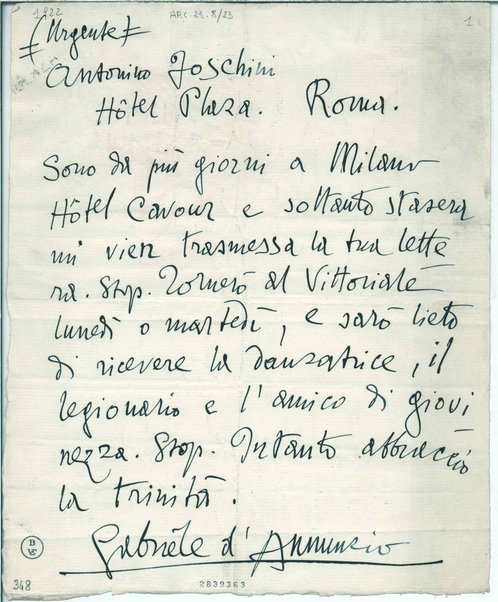 1922
ARC. 21. 8/23
1
(Urgente)
Antonino Foschini
Hôtel Plaza. Roma.
Sono da più giorni a Milano
Hôtel Cavour e soltanto stasera
mi vien trasmessa la tua lette
ra. Stop. Tornerò al Vittoriale
lunedì o martedì, e sarò lieto
di ricevere la danzatrice, il
legionario e l'amico di giovi
nezza. Stop. Intanto abbraccio
la trinità.
Gabriele d'Annunzio
B
VE
348
2839363